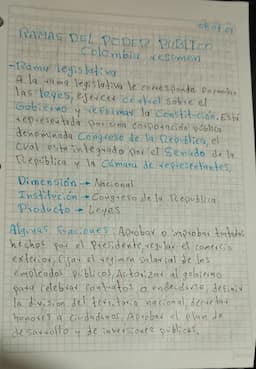 RAMAS DEL PODER PUBLICO
Colombia resumen
-Rama legislativa
A la rama legislativa le corresponde formular
las leyes, ejercer control sobre el
Gobierno y reformar la Constitución. Está
representada por una corporación pública
denominada Congreso de la República, el
cual esta integrado por el Senado de la
República y la Cámara de representantes.
Dimensión → Nacional
Institución → Congreso de la República
Producto → Leyes
Algunas funciones: Aprobar o improbar tratados
hechos por el Presidente, regular el comercio
exterior, fijar el regimen salarial de los
empleados públicos, Autorizar al gobierno
para celebrar contratos o endeudarse, definir
la division del territorio nacional, decretar
honores a ciudadanos, Aprobar el plan de
desarrollo y de inversiones públicas.